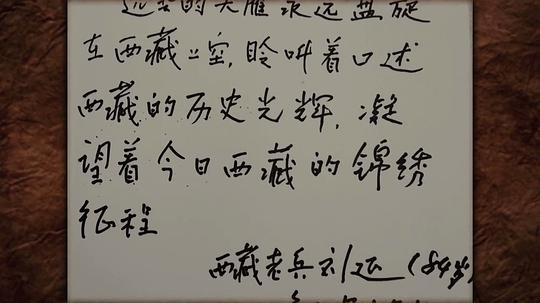 远去的大雁永远盘旋
在西藏上空，聆叫着口述
西藏的历史光辉，凝
望着今日西藏的锦绣
征程
西藏老兵刘延（84岁）